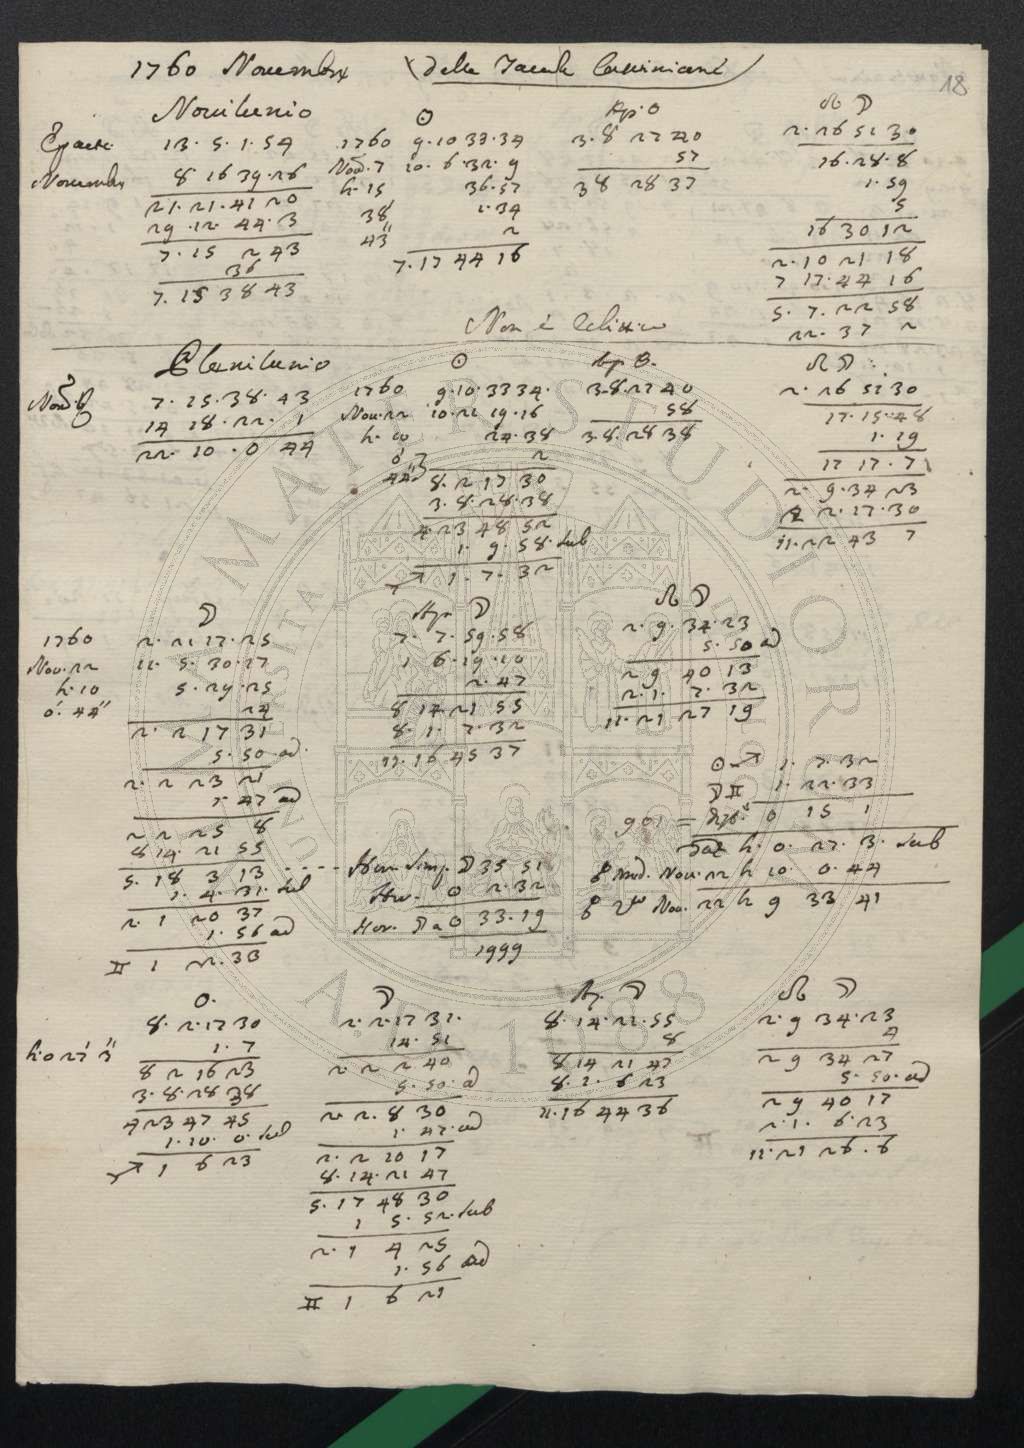 18
1760 Novembre (Delle Tavole Cassiniane)
Novilunio
Epatte 13. 5. 1. 54
Novembre 8 16 39. 26
21. 21. 41 20
29. 12. 44. 3
7. 15 2 43
36
7. 15 38 43
☉
1760 9. 10 33. 34
Nov. 7 10. 6. 32. 9
h. 15 36. 57
38' 1. 34
43" 2
7. 17 44 16
Ap. ☉
3. 8 27 40
57
3 8 28 37
☊ ☽
2. 26 51 30
16. 28. 8
1. 59
5
16 30 12
2. 10 21 18
7 17. 44 16
5. 7. 22 58
22. 37 2
Non è Eclittico
Plenilunio
Nov. 7. 15. 38. 43
14 18. 22. 1
22. 10. 0 44
☉
1760 9. 10. 33 34.
Nov. 22 10. 21 19. 16
h. 10 24. 38
0' 44" 2
8. 2 17 30
3. 8. 28. 38
4. 23 48 52
1. 9. 58. sub
♐ 1. 7. 32
Ap. ☉.
3. 8. 27 40
58
3. 8. 28 38
☊ ☽.
2. 26 51 30
17. 15. 48
1. 19
17 17. 7
2. 9. 34 23
8 2. 17. 30
11. 22 43 7
☽
1760 2. 21 17. 25
Nov. 22 11. 5. 30. 17
h. 10 5. 29. 25
0'. 44" 24
2. 2 17 31
5. 50. ad.
2. 2 23 21
1. 47 ad
2 2 25 8
8 14. 21 55
5. 18 3 13
1. 4. 31. sub
2. 1 20 37
1. 56 ad
♊ 1 22. 33
Ap. ☽
7. 7. 59. 58
1 6. 19. 10
2. 47
8 14 21 55
8. 1. 7. 32
11. 16 45 37
☊ ☽
2. 9. 34. 23
5. 50 ad
2 9 40 13
2. 1. 7. 32
11. 21 27 19
☉ ♐ 1. 7. 32
☽ ♊ 1. 22. 33
901 = 0 15 1
h. 0. 27. 3. sub
☍ med. Nov. 22 h 10. 0. 44
☍ Nov. 22 h 9 33 41
Hor. Simp. ☽ 35 51
Hor. ☉ 2. 32
Hor. ☽ a ☉ 33. 19
1999
☉.
8. 2. 17 30
h. 0 27' 3" 1. 7
8 2 16 23
3. 8. 28 38
4 23 47 45
1. 10. 0. sub
♐ 1 6 23
☽
2. 2. 17 31.
14. 51
2 2 2 40
5. 50. ad
2. 2. 8 30
1. 47. ad
2. 2 10 17
8. 14. 21 47
5. 17 48 30
1 5. 52. sub
2. 1 4 25
1. 56 ad
♊ 1 6 21
Ap. ☽
8. 14. 21. 55
8
8 14 21 47
8. 1. 6 23
11. 16 44 36
☊ ☽
2. 9 34. 23
4
2 9 34 27
5. 50. ad
2 9 40 17
2. 1. 6. 23
11. 21 26. 6
ALMA MATER STUDIORUM
A.D. 1088